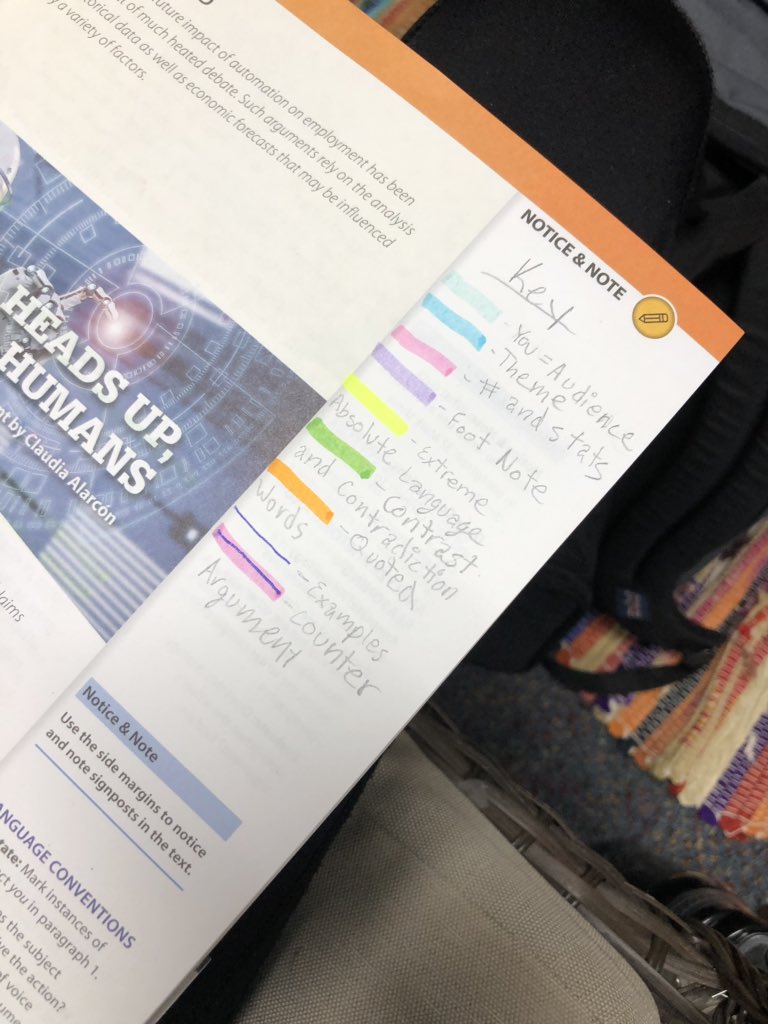 uture impact of automation on employment has been
of much heated debate. Such arguments rely on the analysis
torical data as well as economic forecasts that may be influenced
y a variety of factors.
HEADS UP,
HUMANS
nt by Claudia Alarcón
laims
NOTICE & NOTE
Key
- You = Audience
- Theme
- # and stats
- Foot Note
- Extreme
Absolute Language
- Contrast
and Contradiction
- Quoted
Words
- Examples
- Counter
Argument
Notice & Note
Use the side margins to notice
and note signposts in the text.
ANGUAGE CONVENTIONS
tate: Mark instances of
ct you in paragraph 1.
s the subject
ve the action?
of voice